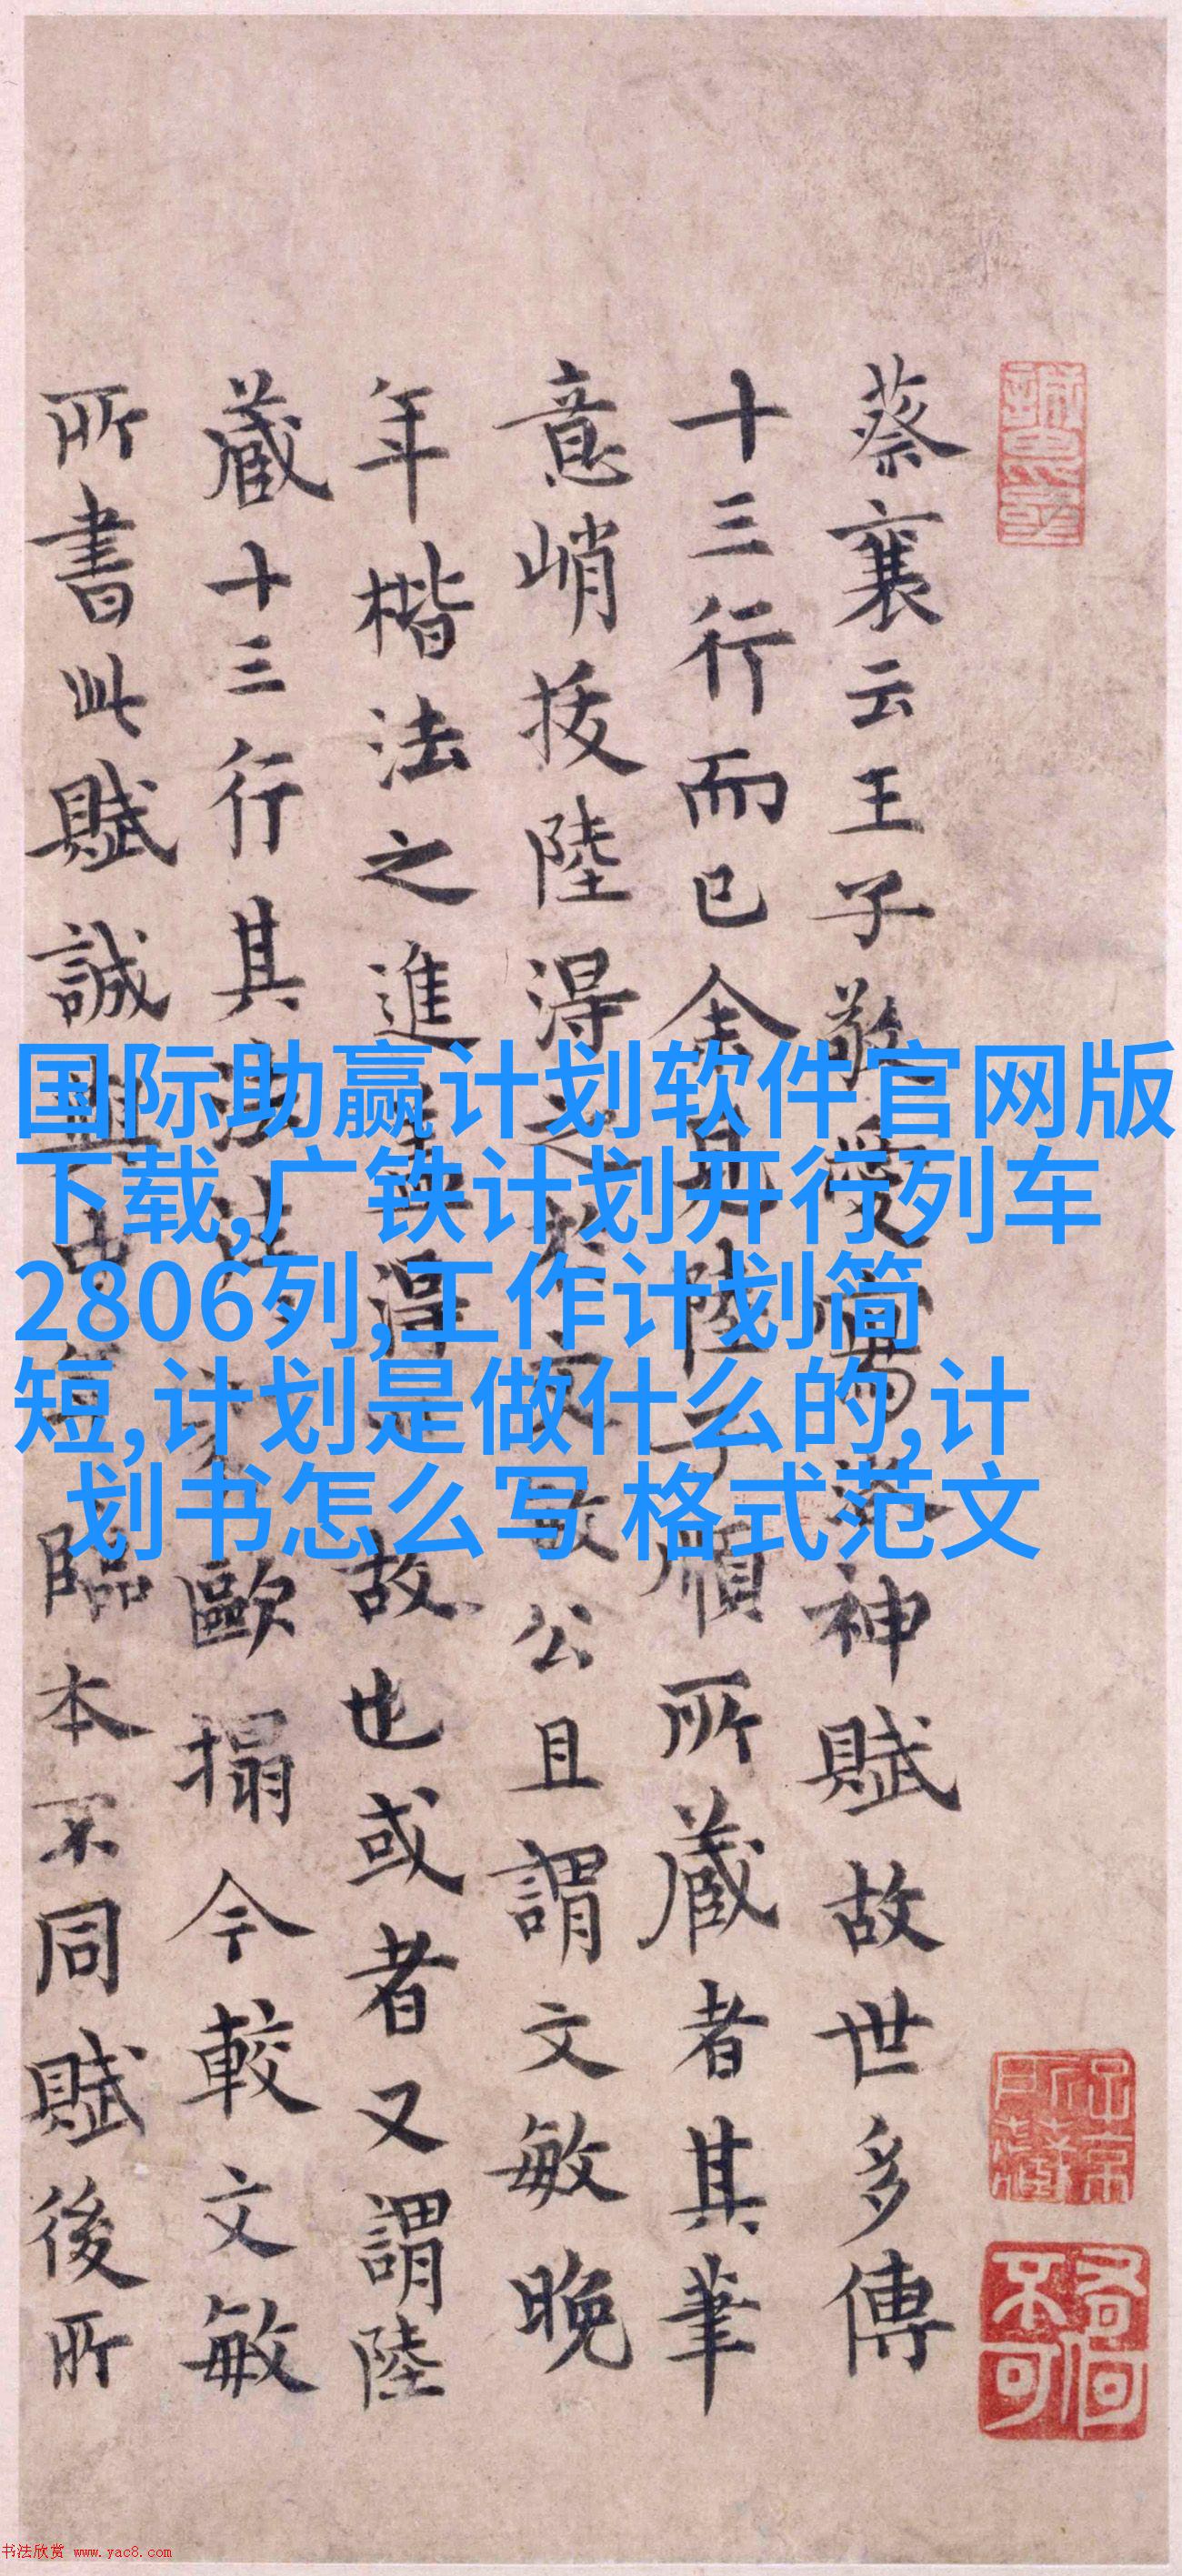 蔡襄云王子敬愛寫洛神賦故世多傳
十三行而已余見陸子順所藏者其筆
意峭拔陸得之於文敏公且謂文敏晚
年楷法之進得故也或者又謂陸
藏十三行其法歐搨今較文敏
所書此賦誠與古臨本不同賦後所
国际助赢计划软件官网版
下载,广铁计划开行列车
2806列,工作计划简
短,计划是做什么的,计
划书怎么写 格式范文
书法欣赏 www.yac8.com